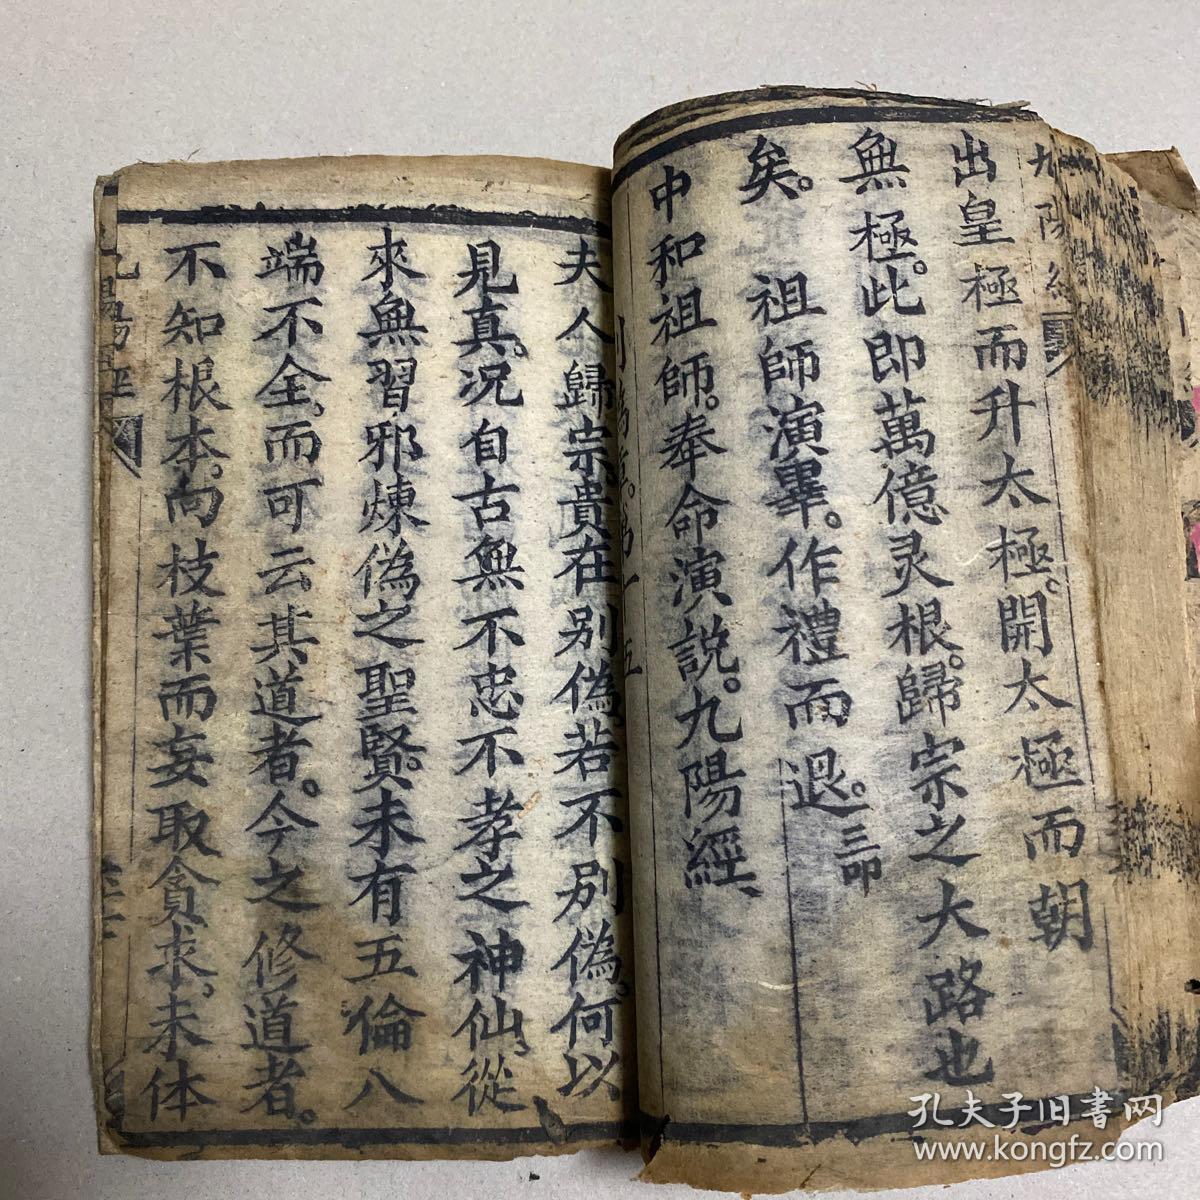 九陽經
出皇極而升太極。開太極而朝
無極。此即萬億灵根。歸宗之大路也
矣。 祖師演畢。作禮而退。三叩
中和祖師。奉命演說。九陽經、
夫人歸宗。貴在別偽。若不別偽。何以
見真。况自古無不忠不孝之神仙。從
來無習邪煉偽之聖賢。未有五倫八
端不全。而可云其道者。今之修道者。
不知根本。向枝葉而妄取貪求。未体
孔夫子旧書网
www.kongfz.com